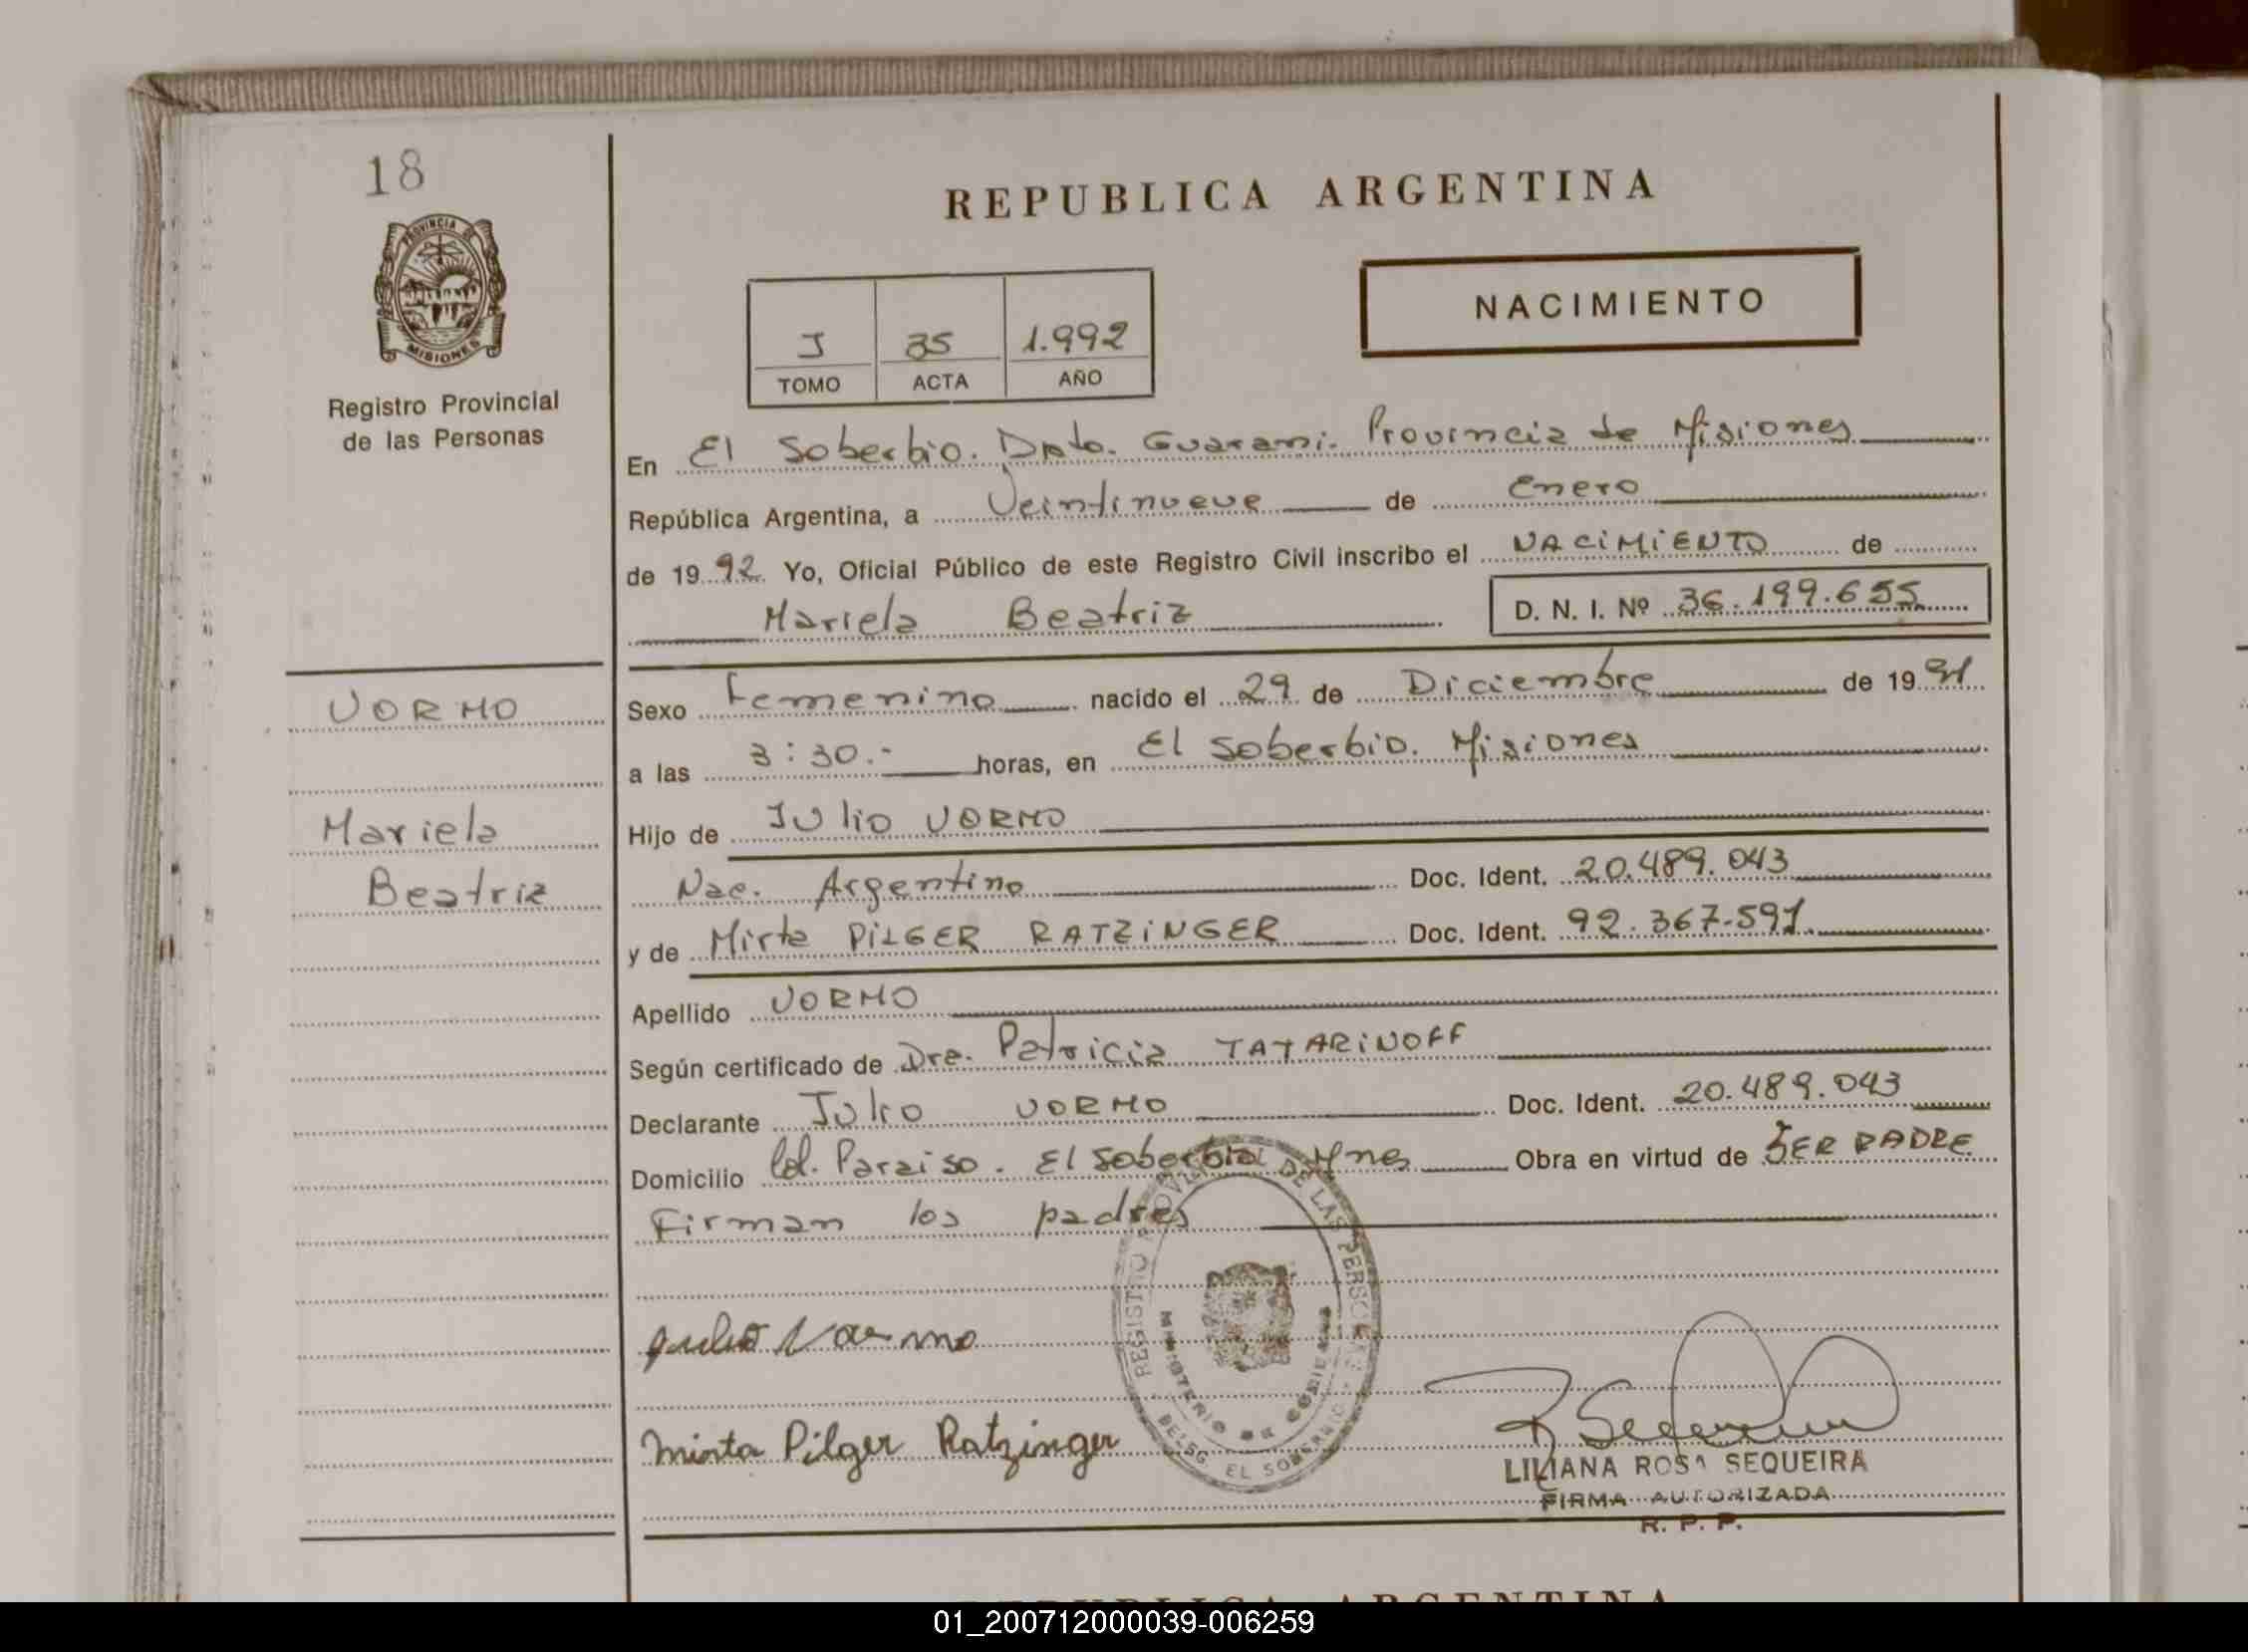 18
PROVINCIA DE
MISIONES
Registro Provincial
de las Personas
REPUBLICA ARGENTINA
NACIMIENTO
I 35 1.992
TOMO ACTA AÑO
En El Soberbio. Dpto. Guarani. Provincia de Misiones
República Argentina, a Veintinueve de Enero
de 1992 Yo, Oficial Público de este Registro Civil inscribo el NACIMIENTO de
Mariela Beatriz D. N. I. Nº 36.199.655
VORMO
Mariela
Beatriz
Sexo Femenino nacido el 29 de Diciembre de 1991
a las 3:30.- horas, en El Soberbio. Misiones
Hijo de Julio VORMO
Nac. Argentino Doc. Ident. 20.489.043
y de Mirta PILGER RATZINGER Doc. Ident. 92.367.591
Apellido VORMO
Según certificado de Dra. Patricia TATARINOFF
Declarante Julio VORMO Doc. Ident. 20.489.043
Domicilio Col. Paraiso. El Soberbio Mnes Obra en virtud de SER PADRE
Firman los padres
REGISTRO PROVINCIAL DE LAS PERSONAS
MINISTERIO DE GOBIERNO
EL SOBERBIO
Julio Vormo
Mirta Pilger Ratzinger
LILIANA ROSA SEQUEIRA
FIRMA AUTORIZADA
R. P. P.
REPUBLICA ARGENTINA
01_200712000039-006259